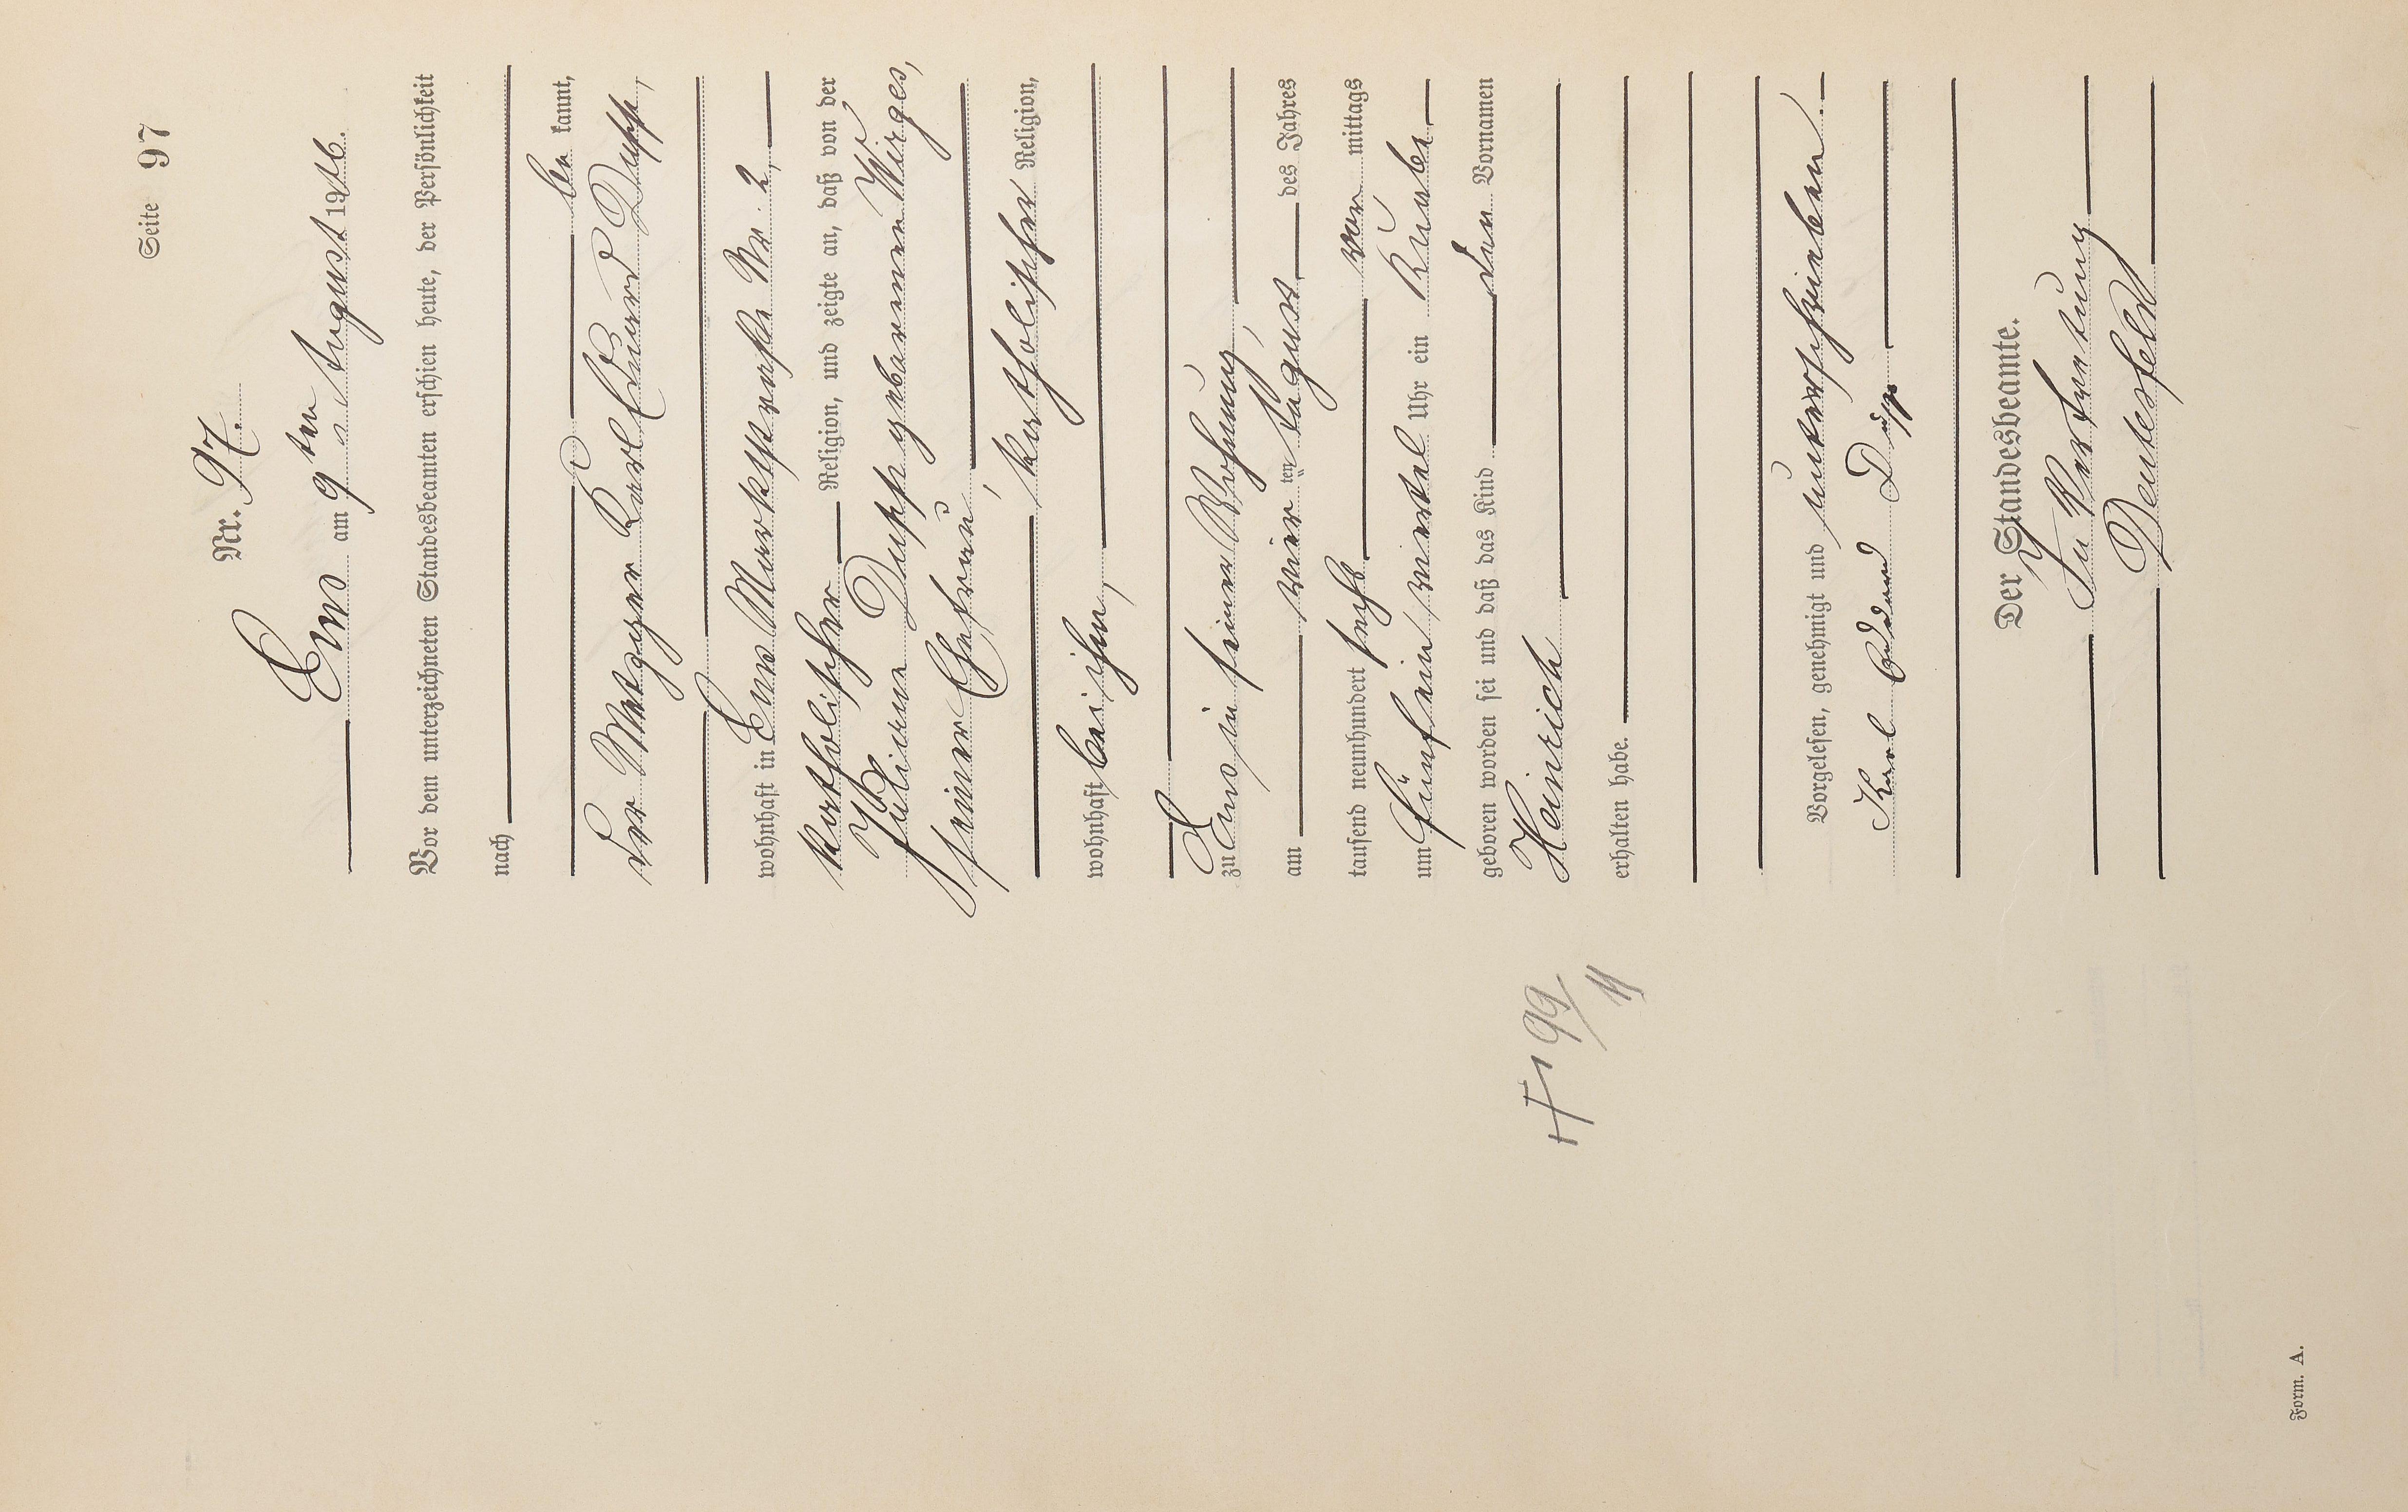 Seite 97
Nr. 97.
Ems am 9ten August 1906.
Vor dem unterzeichneten Standesbeamten erschien heute, der Persönlichkeit
nach
be kannt,
der Metzger Karl Eduard Dupp,
wohnhaft in Ems Marktstraße Nr. 2,
katholischer Religion, und zeigte an, daß von der
Juliana Dupp geborenen Wirges,
seiner Ehefrau,
katholischer Religion,
wohnhaft bei ihm,
zu Ems in seiner Wohnung,
am vier ten August des Jahres
tausend neunhundert sechs vor mittags
um fünf ein viertel Uhr ein Knabe
geboren worden sei und daß das Kind den Vornamen
Heinrich
erhalten habe.
Vorgelesen, genehmigt und unterschrieben.
Karl Eduard Dupp
Der Standesbeamte.
In Vertretung
Deutesfeld
99/11
Form. A.